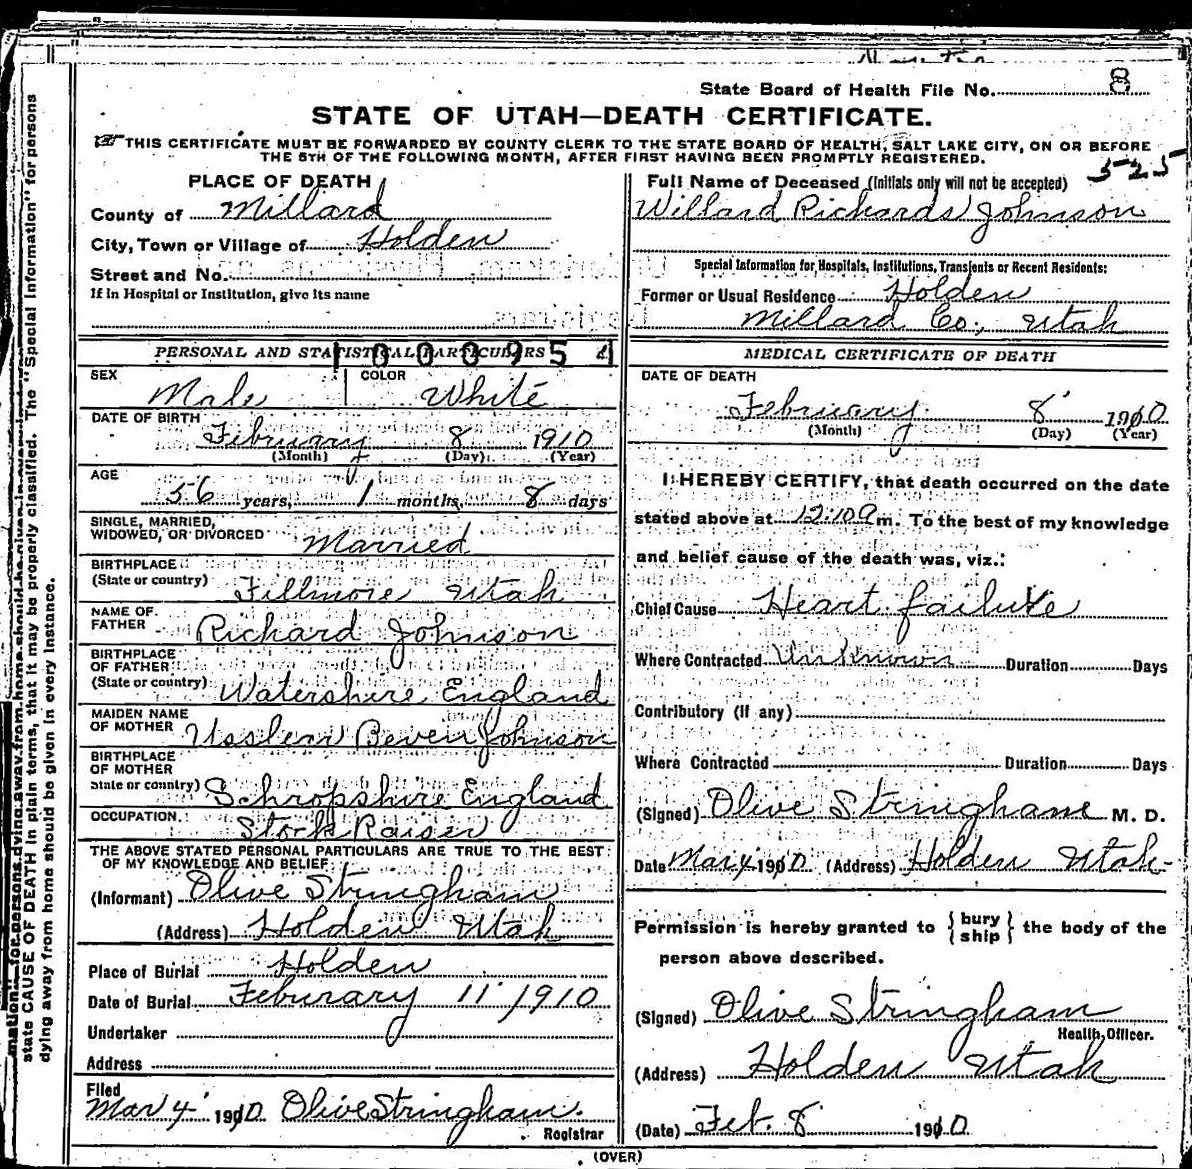 State Board of Health File No. 8
STATE OF UTAH—DEATH CERTIFICATE.
THIS CERTIFICATE MUST BE FORWARDED BY COUNTY CLERK TO THE STATE BOARD OF HEALTH, SALT LAKE CITY, ON OR BEFORE
THE 5TH OF THE FOLLOWING MONTH, AFTER FIRST HAVING BEEN PROMPTLY REGISTERED.
525
PLACE OF DEATH
County of Millard
City, Town or Village of Holden
Street and No.
If in Hospital or Institution, give its name
PERSONAL AND STATISTICAL PARTICULARS
1000954
SEX Male COLOR White
DATE OF BIRTH February 8 1910
(Month) (Day) (Year)
AGE 56 years, 1 months, 8 days
SINGLE, MARRIED,
WIDOWED, OR DIVORCED Married
BIRTHPLACE
(State or country) Fillmore Utah
NAME OF
FATHER Richard Johnson
BIRTHPLACE
OF FATHER
(State or country) Watershire England
MAIDEN NAME
OF MOTHER Usslem Beven Johnson
BIRTHPLACE
OF MOTHER
State or country) Schropshire England
OCCUPATION. Stock Raiser
THE ABOVE STATED PERSONAL PARTICULARS ARE TRUE TO THE BEST
OF MY KNOWLEDGE AND BELIEF
(Informant) Olive Stringham
(Address) Holden Utah
Place of Burial Holden
Date of Burial Feburary 11 1910
Undertaker
Address
Filed
Mar 4 1910 Olive Stringham.
Registrar
Full Name of Deceased (Initials only will not be accepted)
Willard Richards Johnson
Special Information for Hospitals, Institutions, Transients or Recent Residents:
Former or Usual Residence Holden
Millard Co., Utah
MEDICAL CERTIFICATE OF DEATH
DATE OF DEATH
February 8 1910
(Month) (Day) (Year)
I HEREBY CERTIFY, that death occurred on the date
stated above at 12:10 a m. To the best of my knowledge
and belief cause of the death was, viz.:
Chief Cause Heart failure
Where Contracted Unknown Duration Days
Contributory (if any)
Where Contracted Duration Days
(Signed) Olive Stringham M. D.
Date Mar 4 1910 (Address) Holden Utah
Permission is hereby granted to {bury
ship} the body of the
person above described.
(Signed) Olive Stringham
Health Officer.
(Address) Holden Utah
(Date) Feb. 8 1910
(OVER)
state CAUSE OF DEATH in plain terms, that it may be properly classified. The "Special Information" for persons
dying away from home should be given in every instance.